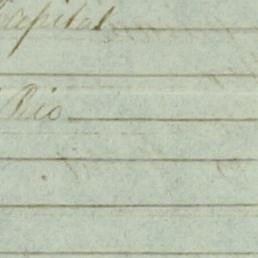 Capital
Rio